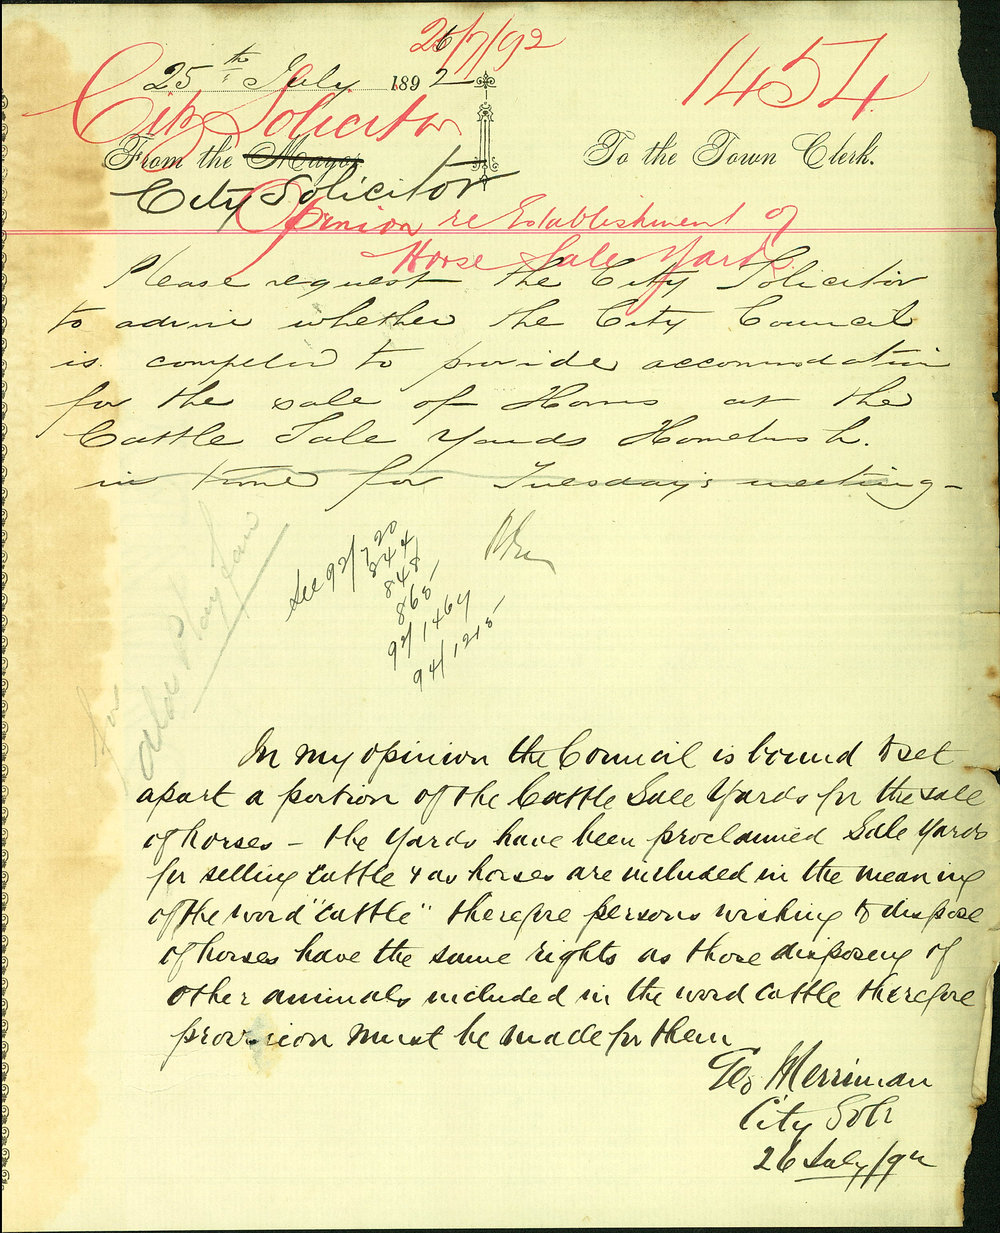 26/7/92
25th July 1892
1454
City Solicitor
From the Mayor
To the Town Clerk.
City Solicitor
Opinion re Establishment of
Horse Sale Yards.
Please request the City Solicitor
to advise whether the City Council
is compelled to provide accommodation
for the sale of Horses at the
Cattle Sale Yards Homebush.
in time for Tuesday's meeting -
See 92/720
844
848
865
92/1464
94/1215
for
Ald
In my opinion the Council is bound to set
apart a portion of the Cattle Sale Yards for the sale
of horses - the yards have been proclaimed Sale Yards
for selling cattle & as horses are included in the meaning
of the word "cattle" therefore persons wishing to dispose
of horses have the same rights as those disposing of
other animals included in the word cattle therefore
provision must be made for them
Geo Merriman
City Solr
26 July /92